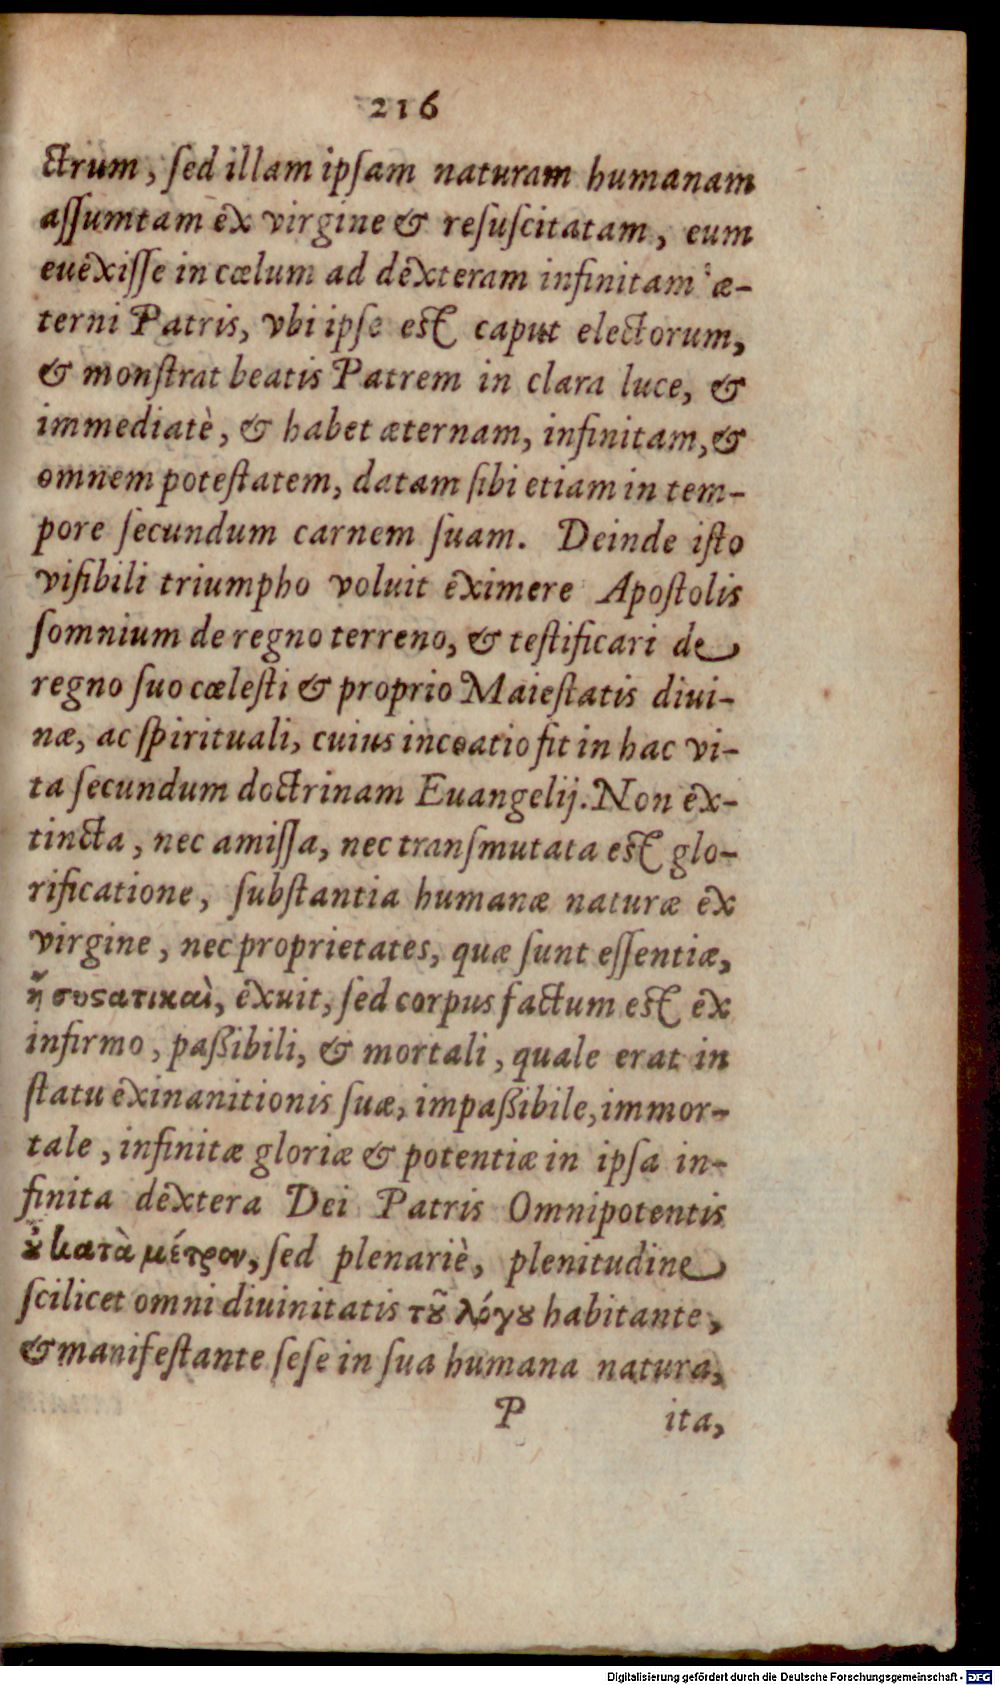 216
ctrum, ſed illam ipſam naturam humanam
aſſumtam ex virgine & reſuſcitatam, eum
euexiſſe in cœlum ad dexteram infinitam æ-
terni Patris, vbi ipſe eſt caput electorum,
& monſtrat beatis Patrem in clara luce, &
immediatè, & habet æternam, infinitam, &
omnem poteſtatem, datam ſibi etiam in tem-
pore ſecundum carnem ſuam. Deinde iſto
viſibili triumpho voluit eximere Apoſtolis
ſomnium de regno terreno, & teſtificari de
regno ſuo cœleſti & proprio Maieſtatis diui-
næ, ac ſpirituali, cuius incoatio fit in hac vi-
ta ſecundum doctrinam Euangelij. Non ex-
tincta, nec amiſſa, nec tranſmutata eſt glo-
rificatione, ſubſtantia humanæ naturæ ex
virgine, nec proprietates, quæ ſunt eſſentiæ,
ἢ συςατικαὶ, exuit, ſed corpus factum eſt ex
infirmo, paßibili, & mortali, quale erat in
ſtatu exinanitionis ſuæ, impaßibile, immor-
tale, infinitæ gloriæ & potentiæ in ipſa in-
finita dextera Dei Patris Omnipotentis
ȣ̓ κατὰ μέτρον, ſed plenariè, plenitudine
ſcilicet omni diuinitatis τȣ͂ λόγȣ habitante,
& manifeſtante ſeſe in ſua humana natura,
P ita,
Digitalisierung gefördert durch die Deutsche Forschungsgemeinschaft - DFG